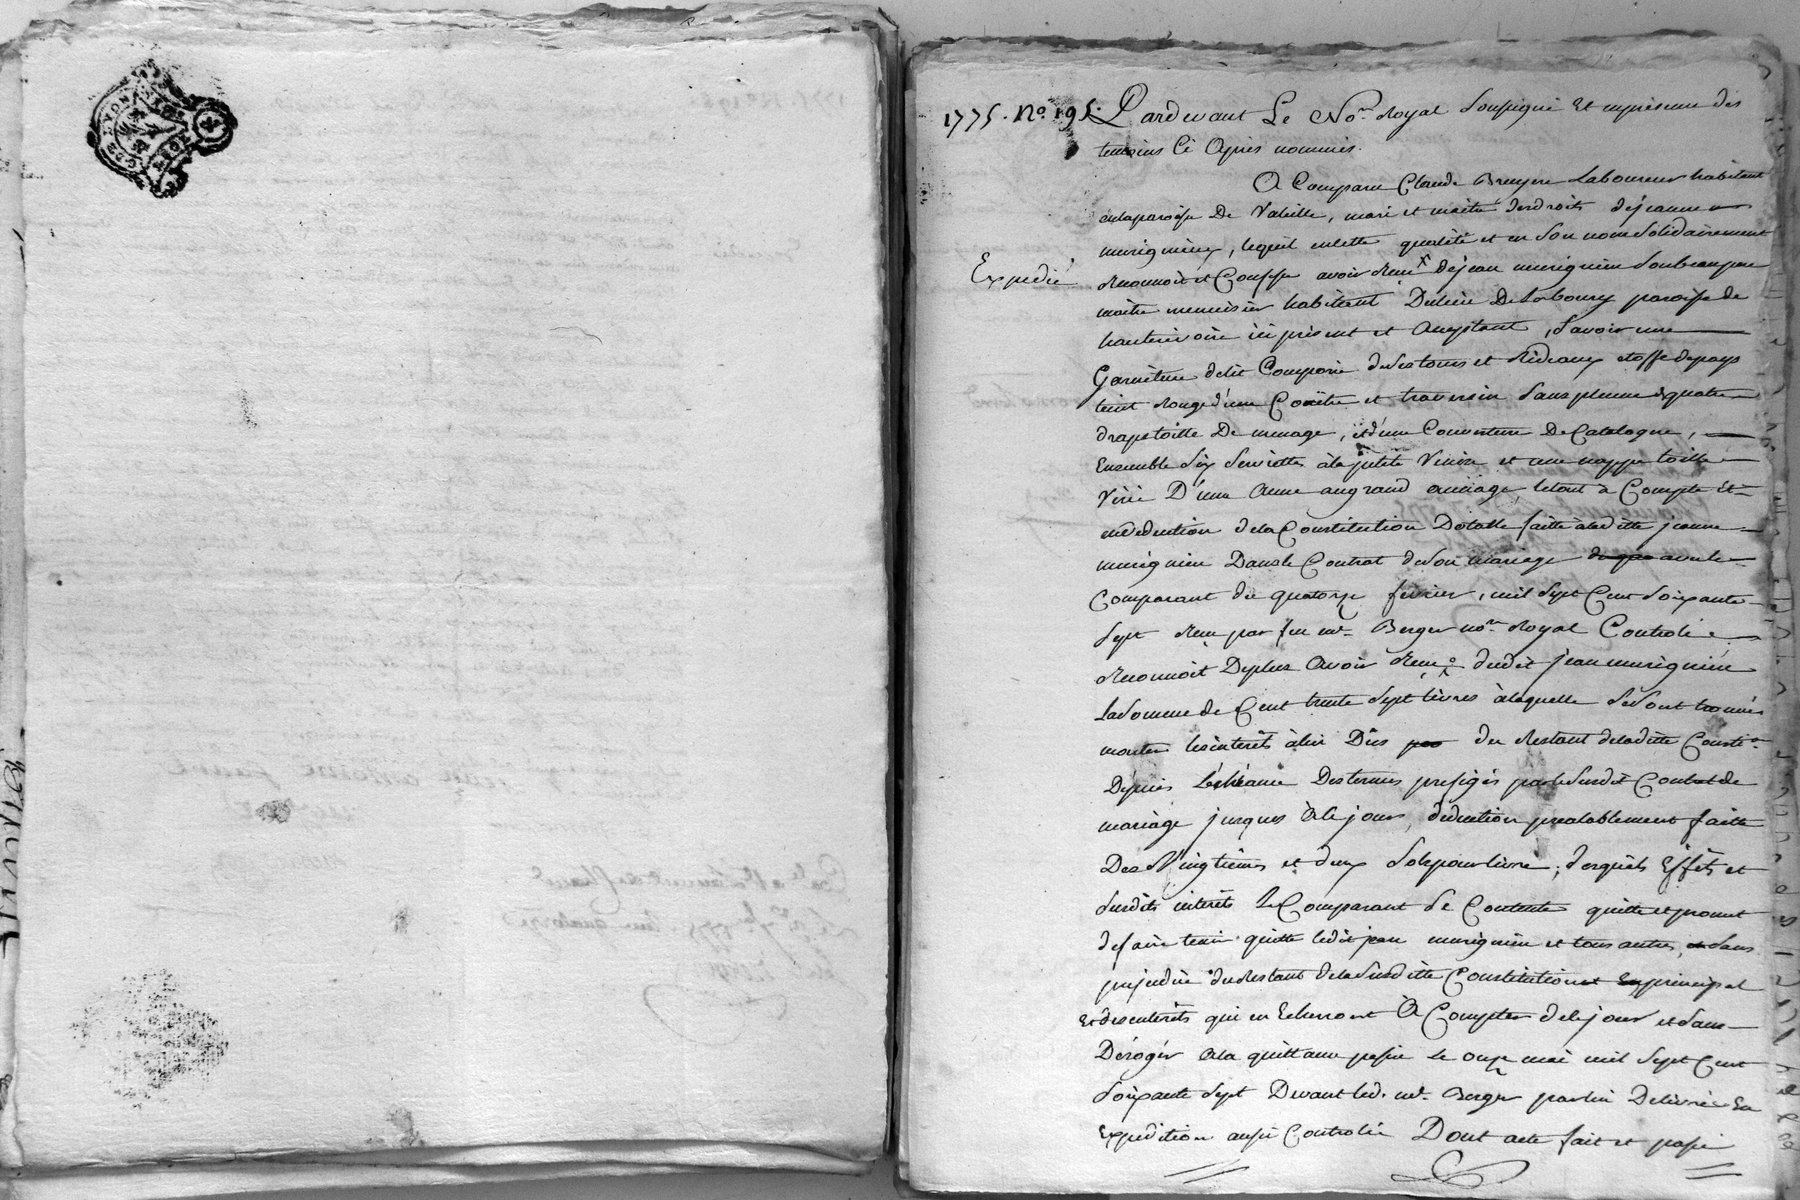 1775. No. 195. Pardevant Le No.re Royal Soussigné Et en présence des
temoins Ci Après nommés.
A Comparu Claude Bruyere Laboureur habitant
en la paroisse De Valeille, mari et maitre des droits de jeanne
murigneux, lequel en cette qualité et en son nom solidairement
Expedié
Reconnoit et Confesse avoir Reçu de jean murignieu son beaupere
maitre menuisier habitant Du lieu De Laboury paroisse de
hauterivoire ici présent et Acceptant, Savoir une
Garniture de lit Composée de ses tours et Rideaux étoffe de pays
teint Rouge d'une Coëtre et traversin sans plume de quatre
draps toille De menage, et d'une Couverture De Catalogne,
Ensemble six Serviettes à la petite Venise et une nappe toille
Venise D'une Aune au grand ouvrage, le tout à Compte Et
en deduction de la Constitution Dotalle faitte a laditte jeanne
murignieu Dans le Contrat de son mariage avec le
Comparant du quatorze fevrier, mil Sept Cent Soixante
Sept Reçu par feu me. Berger no.re Royal Controlé
Reconnoit De plus Avoir Reçu dudit jean murignieu
La Somme de Cent trente Sept livres à laquelle Se Sont trouvés
monter les intérêts à lui Dûs du Restant de laditte Consti.on
Depuis L'échéance Des termes prefigés par le Susdit Contrat de
mariage jusques À Ce jour, deduction prealablement faitte
Des Vingtièmes et deux Sols pour livre; desquels Effêts et
Susdits intérêts Le Comparant Se Contente quitte et promet
de faire tenir quitte ledit jean murignieu et tous autres, Sans
prejudice du Restant de la Susditte Constitution En principal
Et des interêts qui en Echerront À Compter de Ce jour et Sans
Déroger À la quittance passée Le onze mai mil Sept Cent
Soixante Sept Devant led. me. Berger par lui Delivrée En
Expedition aussi Controlée Dont acte fait et passé